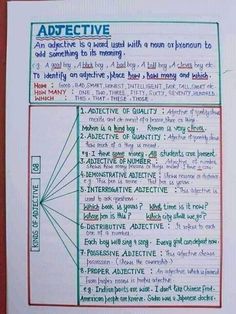 ADJECTIVE
An adjective is a word used with a noun or pronoun to
add something to its meaning.
e.g. A good boy, A black boy, A bad boy, A tall boy, A clever boy etc.
To identify an adjective, place how, how many and which.
HOW : Good, BAD, SMART, HONEST, INTELLIGENT, FAT, TALL, SHORT etc.
HOW MANY : ONE, TWO, THREE, FIFTY, SIXTY, SEVENTY, HUNDRED
WHICH : THIS - THAT - THESE - THOSE
KINDS OF ADJECTIVE (08)
1. ADJECTIVE OF QUALITY : Adjective of quality shows
quality and demerit of a person, place or thing
Mohan is a king boy. Raman is very clever.
2. ADJECTIVE OF QUANTITY : Adjective of quantity shows
how much of a thing is meant.
e.g. I have some money. All students are present.
3. ADJECTIVE OF NUMBER : Adjective of number
shows how many persons or things are
4. DEMONSTRATIVE ADJECTIVE : Shows persons or distance
e.g. This pen is mine - That pen is yours.
5. INTERROGATIVE ADJECTIVE : This adjective is
used to ask question.
Which book is yours? What time is it now?
Whose pen is this? Which city shall we go?
6. DISTRIBUTIVE ADJECTIVE : It refers to each
one of a number.
Each boy will sing a song. Every girl can depart now.
7. POSSESSIVE ADJECTIVE : This adjective shows
possession. (Shows the ownership)
8. PROPER ADJECTIVE : An adjective which is formed
from proper nouns is proper adjective.
e.g. Indian ports are wise. I don't like Chinese food.
American people are honest. Smho was a Japanese doctor.